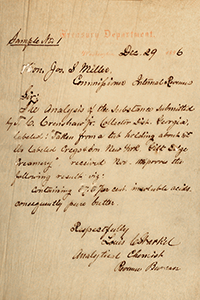 Treasury Department
Sample No 1
Dec. 29 6
Hon. Jos. S. Miller
Commissioner Internal Revenue
Sir:
The Analysis of the Substance submitted
by T. C. Crenshaw Jr. Collector Dist. Georgia,
labeled: "Taken from a tub holding about
lbs labeled New York
Creamery" received Nov. approves the
following result viz:
Containing 87.0 per cent. insoluble acids.
consequently pure butter.
Respectfully
Louis
Analytical Chemist
Revenue Bureau